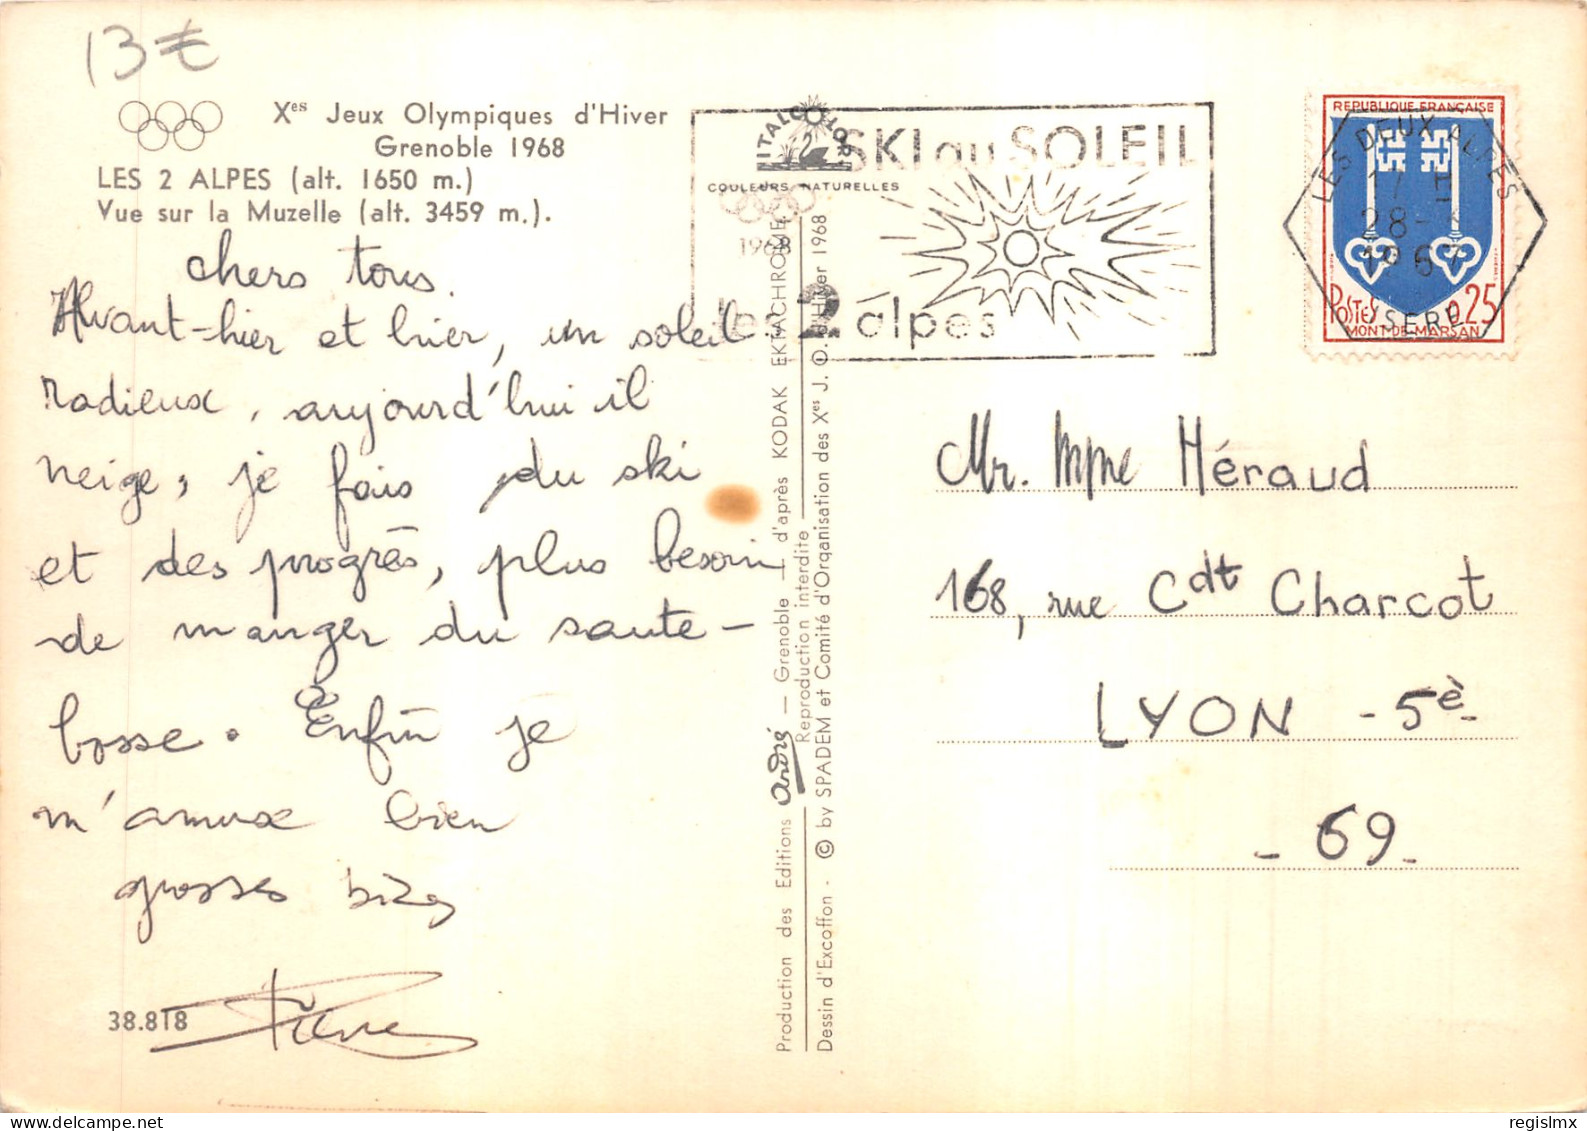 13€
Xes Jeux Olympiques d'Hiver
Grenoble 1968
LES 2 ALPES (alt. 1650 m.)
Vue sur la Muzelle (alt. 3459 m.).
chers tous.
Avant-hier et hier, un soleil
radieux, aujourd'hui il
neige, je fais du ski
et des progrès, plus besoin
de manger du saute-
bosse. Enfin je
m'amuse bien
grosses bizes
Pierre
38.818
ITALCOLOR
COULEURS NATURELLES
SKI au SOLEIL
1968
les 2 alpes
REPUBLIQUE FRANÇAISE
POSTES 0,25
MONT-DE-MARSAN
LES DEUX ALPES
17 H
28-
1967
ISERE
Production des Editions André — Grenoble — d'après KODAK EKTACHROME
Reproduction interdite
Dessin d'Excoffon - © by SPADEM et Comité d'Organisation des Xes J. O. d'Hiver 1968
Mr. Mme Héraud
168, rue Cdt Charcot
LYON - 5è -
- 69 -
regislmx